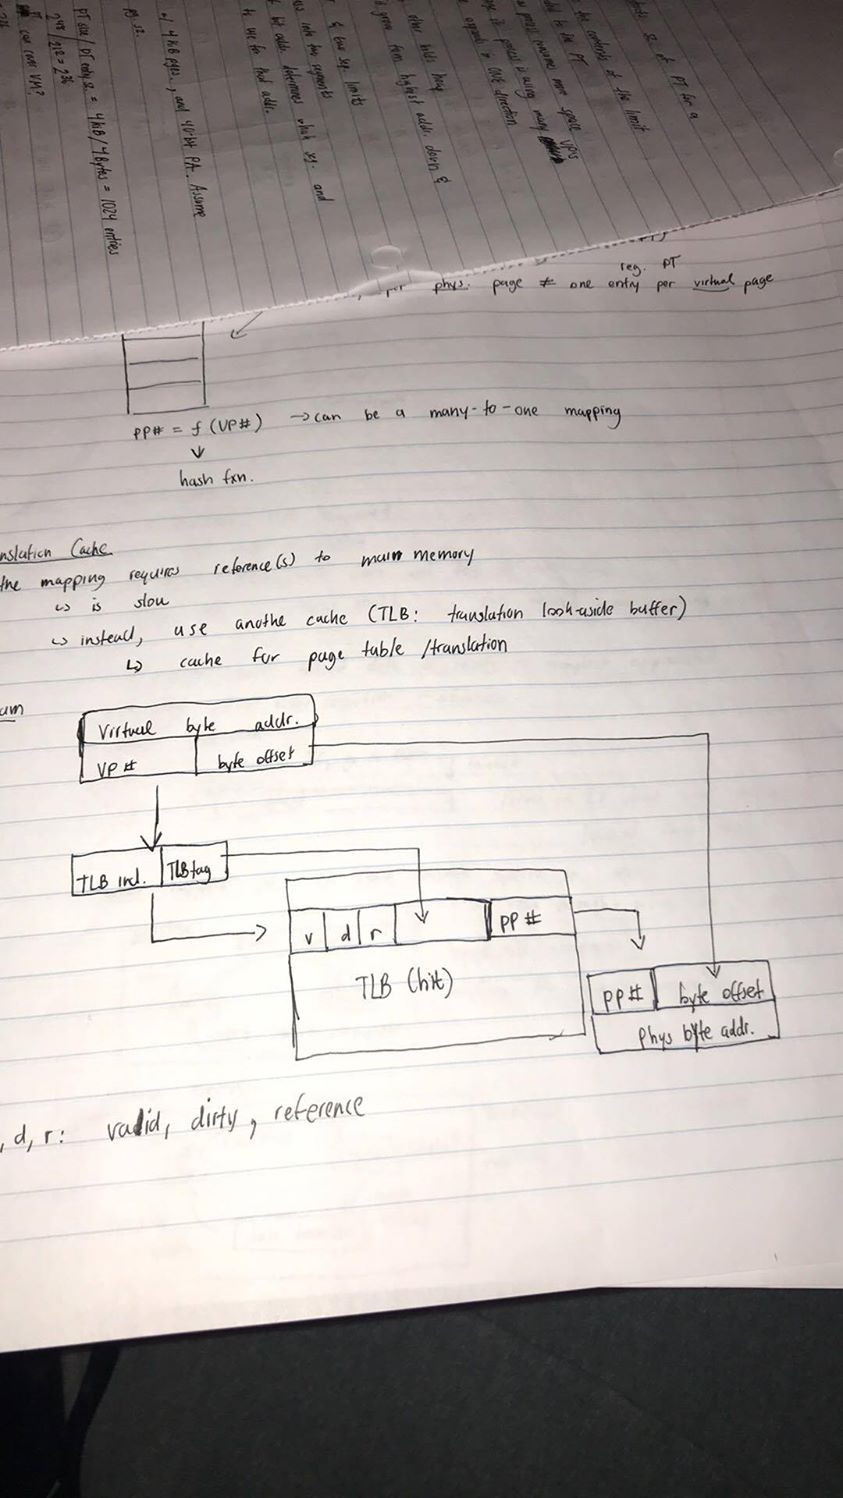 size of PT for a
the contents of the limit
to the PT
process consumes more space VPNs
if process is using many
append in ONE direction
other fields may
grow from highest addr. down &
& low seg. limits
into two segments
bit addr. determines which seg. and
to use for that addr.
w/ 4 KB pages, and 40 bit PA. Assume
pg. sz.
PT size / PT entry sz. = 4KB / 4 Bytes = 1024 entries
2^48 / 2^12 = 2^36
can cover VM?
reg. PT
per phys. page ≠ one entry per virtual page
PP# = f (VP#) → can be a many-to-one mapping
hash fxn.
nslation Cache
the mapping requires reference(s) to main memory
↳ is slow
↳ instead, use anothe cache (TLB: translation look-aside buffer)
↳ cache for page table /translation
am
Virtual byte addr.
VP # byte offset
TLB ind. TLB tag
v d r PP #
TLB (hit)
PP# byte offset
Phys byte addr.
, d, r: valid, dirty, reference